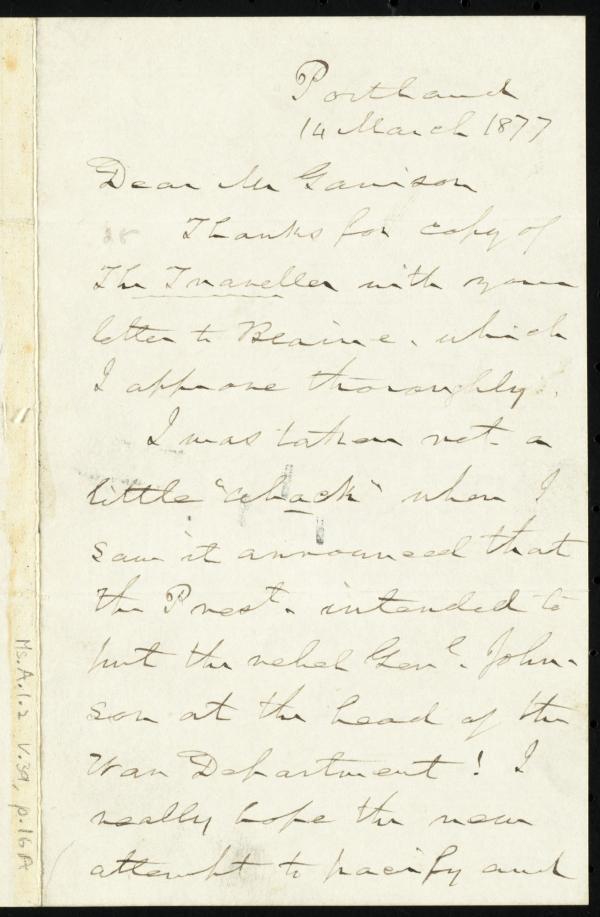 Portland
14 March 1877
Dear Mr Garrison
Thanks for copy of
The Traveller with your
letter to Blaine, which
I approve thoroughly.
I was taken not a
little "aback" when I
saw it announced that
the Prest. intended to
put the rebel Genl. John-
son at the head of the
War Department! I
really hope the new
attempt to pacify and
Ms.A.1.2 V.39, p.16A